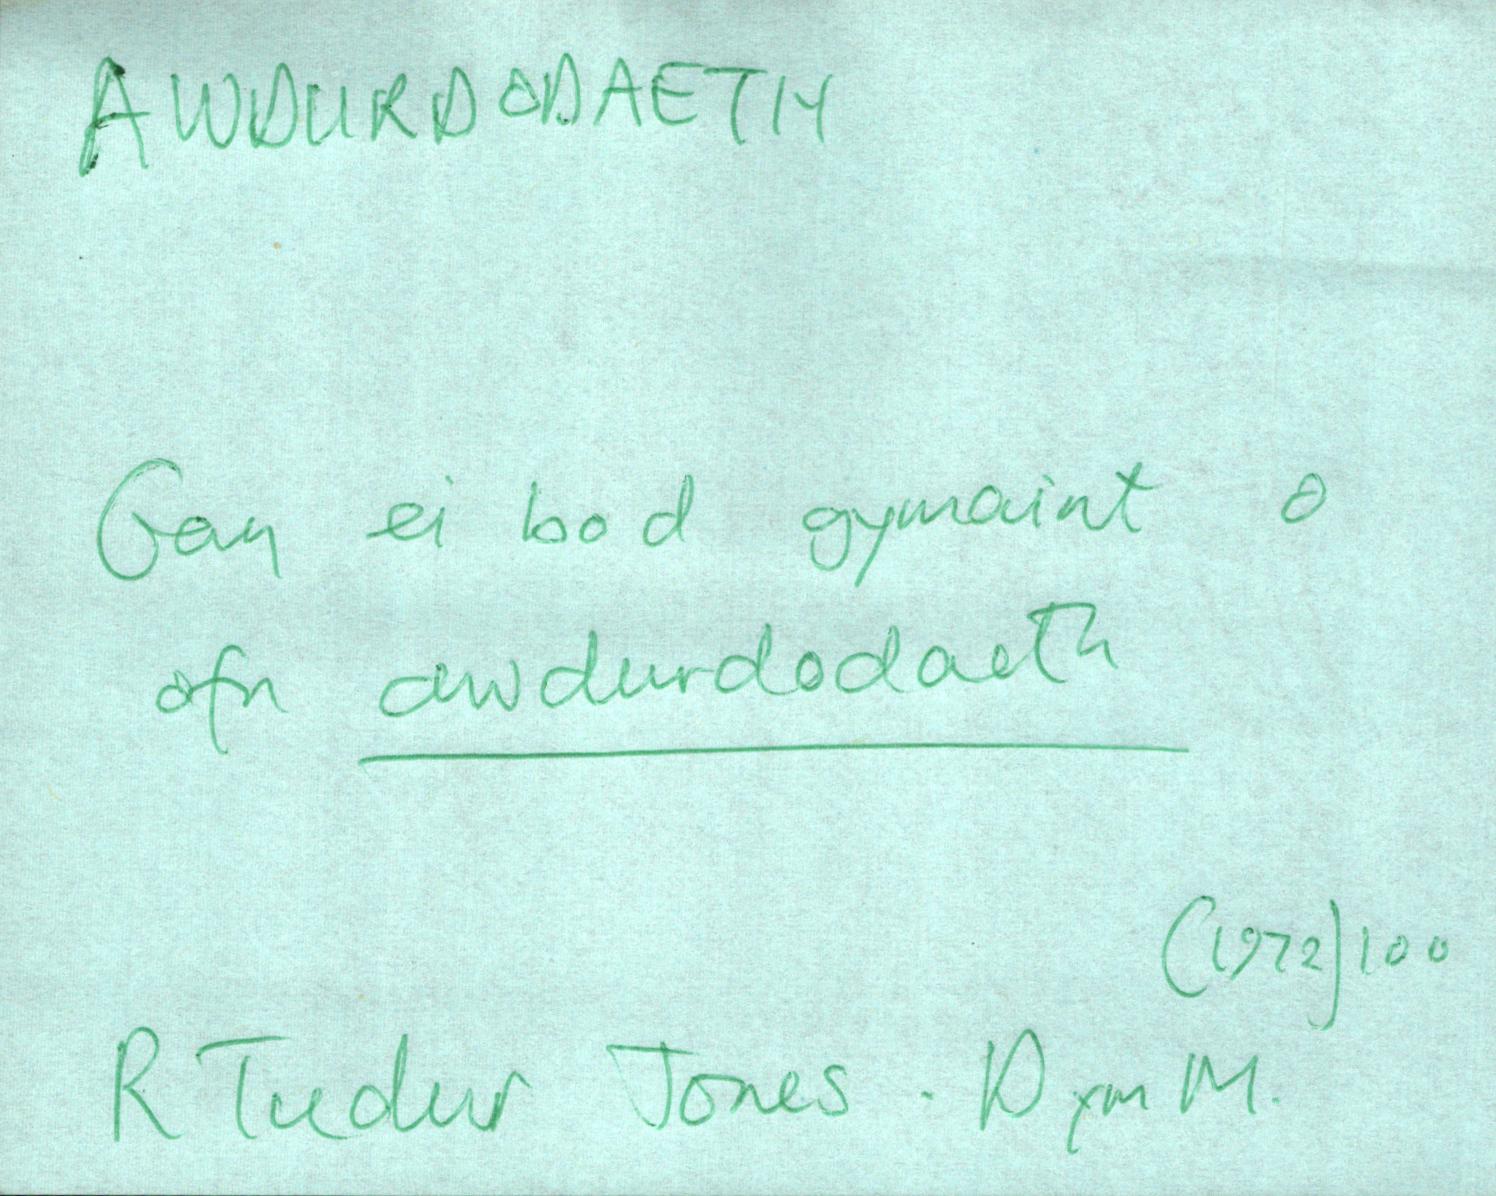 AWDURDODAETH
Gan ei bod gymaint o
ofn awdurdodaeth
(1972) 100
R Tudur Jones. Dym M.